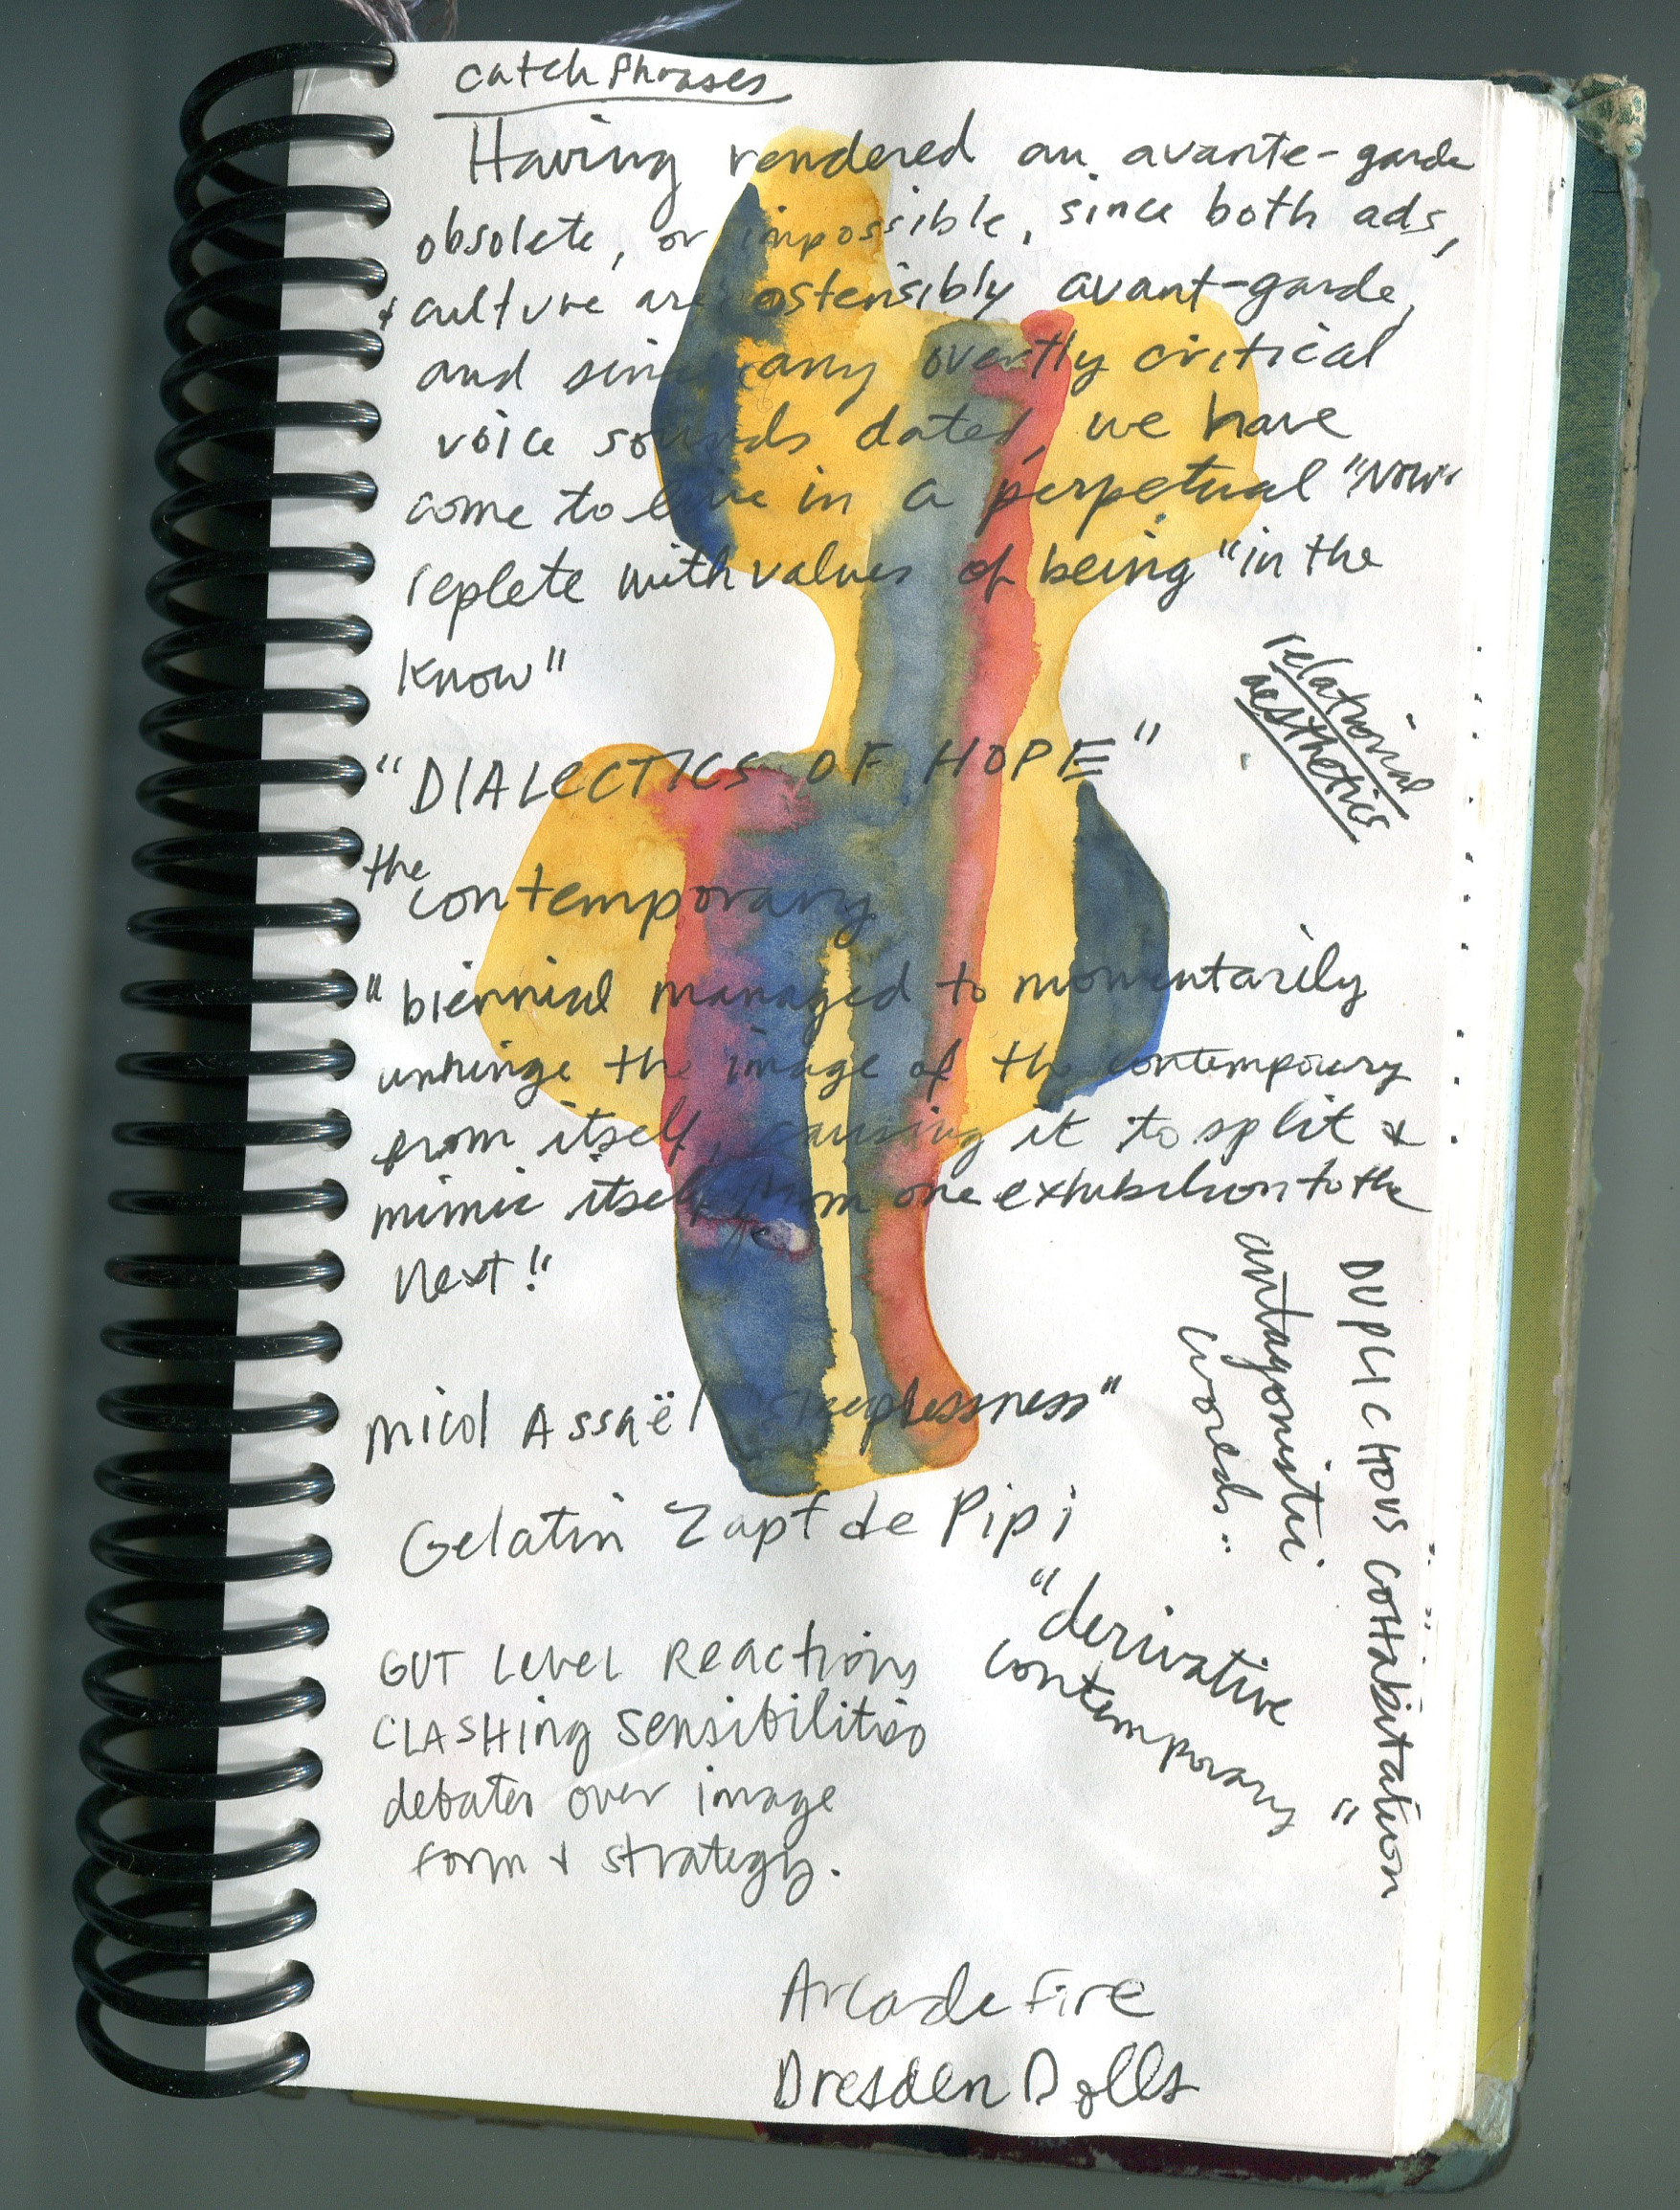 Catch Phrases
Having rendered an avante-garde
obsolete, or impossible, since both ads,
& culture are ostensibly avant-garde,
and since any overtly critical
voice sounds dated, we have
come to live in a perpetual "NOW"
replete with values of being "in the
know"
relational
aesthetics
"DIALECTICS OF HOPE"
the
contemporary
"biennial managed to momentarily
unhinge the image of the contempoury
from itself, causing it to split &
mimic itself from one exhibition to the
Next!"
antagonistic
worlds..
DUPLICHOUS COHAbitation
"
Micol Assaël "Sleeplessness"
Gelatin Zapf de Pipi
"derivative
contemporary
GUT Level Reactions
CLASHing Sensibilities
debates over image
form & strategy.
Arcade Fire
Dresden Dolls